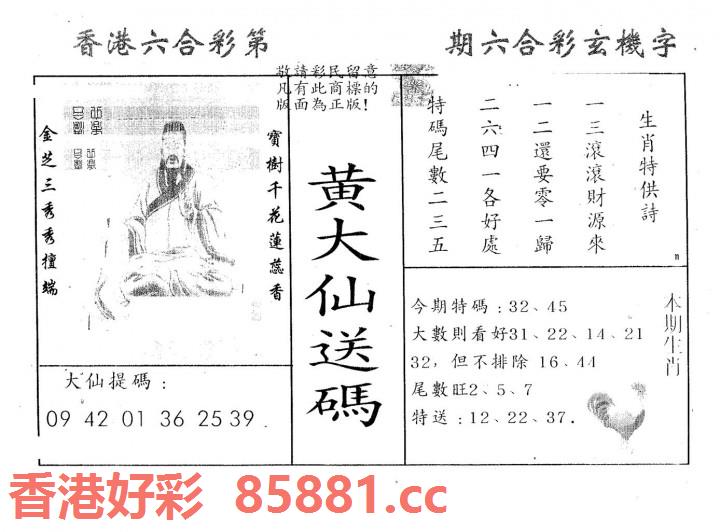 香港六合彩第
期六合彩玄機字
敬請彩民留意
凡有此商標的
版面為正版!
金芝三秀秀檀端
寶樹千花蓮蕊香
大仙提碼：
09 42 01 36 25 39.
黃大仙送碼
生肖特供詩
一三滾滾財源來
一二還要零一歸
二六四一各好處
特碼尾數二三五
本期生肖
今期特碼：32、45
大數則看好31、22、14、21
32，但不排除 16、44
尾數旺2、5、7
特送：12、22、37.
香港好彩 85881.cc